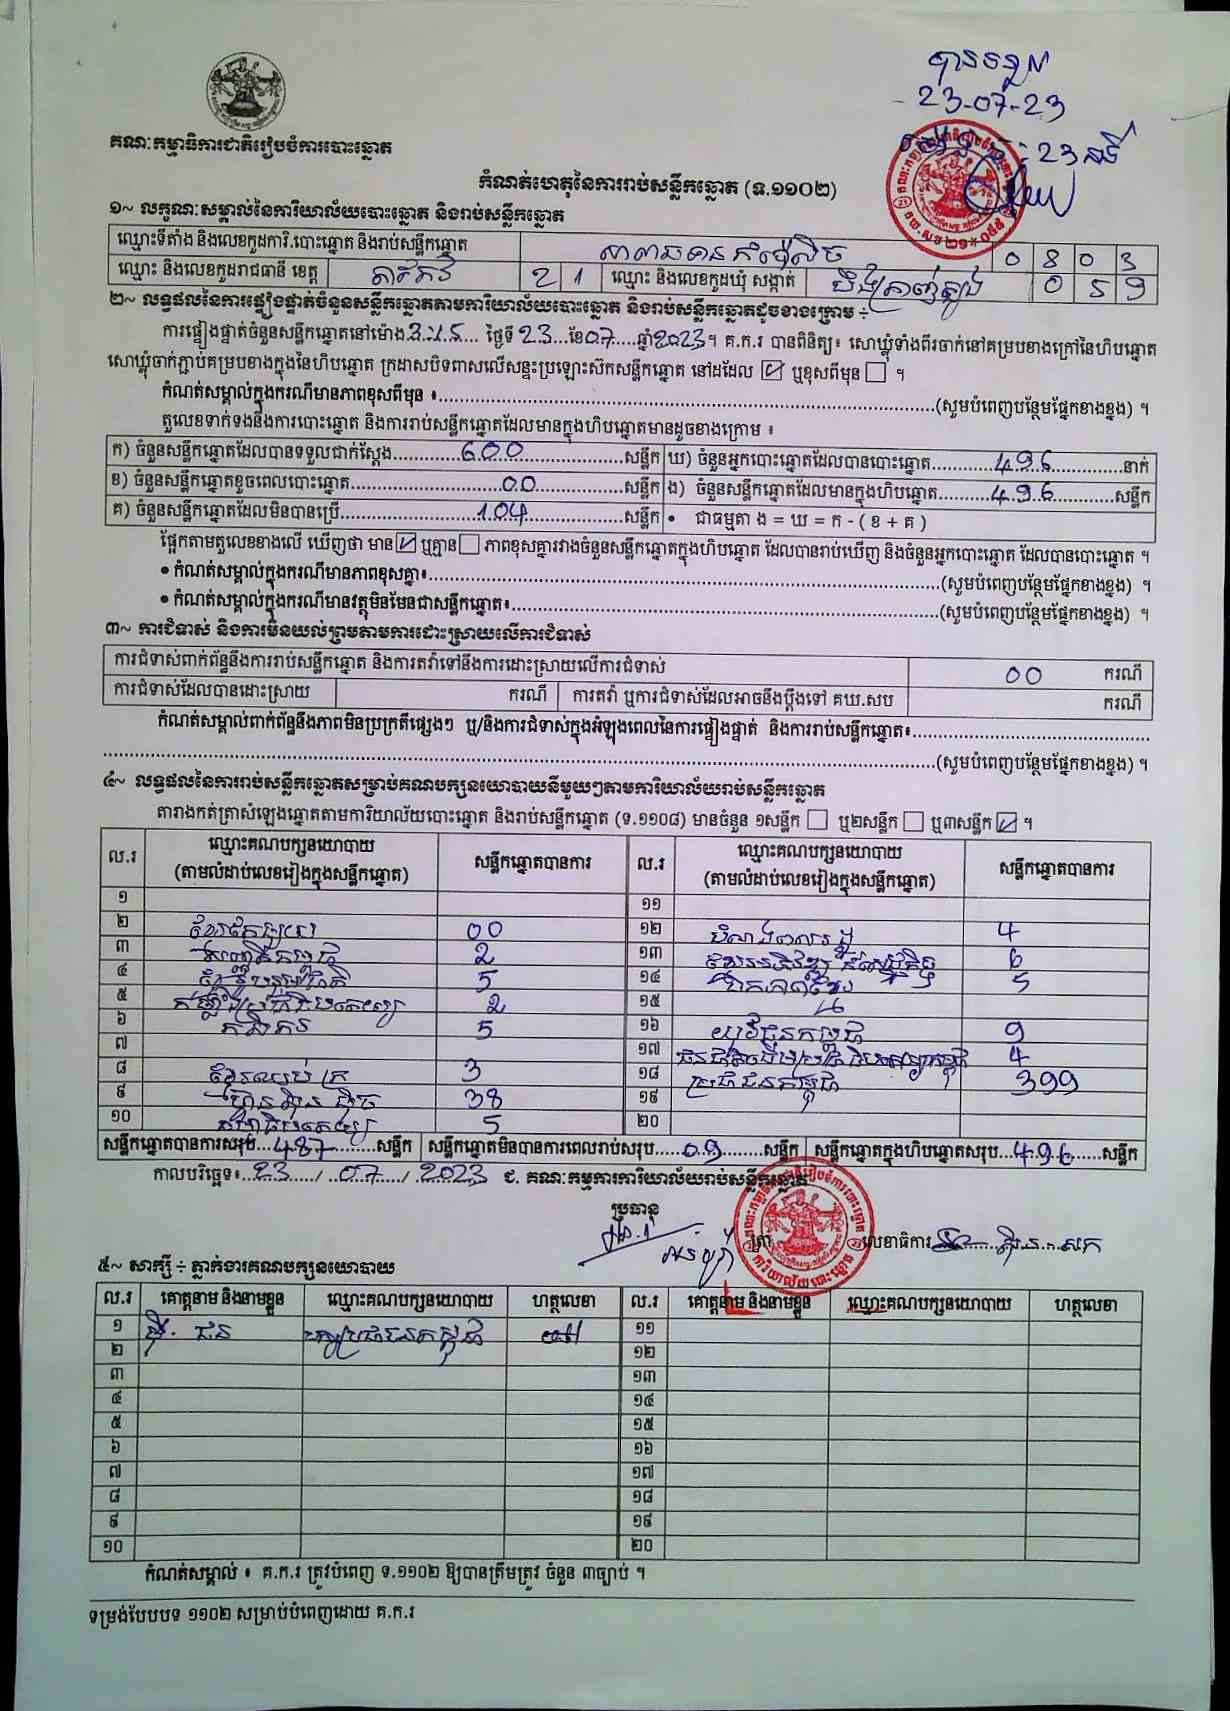 បានទទួល
23-07-23
គណៈកម្មាធិការជាតិរៀបចំការបោះឆ្នោត
កំណត់ហេតុនៃការរាប់សន្លឹកឆ្នោត (ទ.១១០២)
១~ លក្ខណៈសម្គាល់នៃការិយាល័យបោះឆ្នោត និងរាប់សន្លឹកឆ្នោត
ឈ្មោះទីតាំង និងលេខកូដការិ.បោះឆ្នោត និងរាប់សន្លឹកឆ្នោត 0 8 0 3
ឈ្មោះ និងលេខកូដរាជធានី ខេត្ត តាកែវ 2 1 ឈ្មោះ និងលេខកូដឃុំ សង្កាត់ បឹងត្រាញ់ត្បូង 0 5 9
២~ លទ្ធផលនៃការផ្ទៀងផ្ទាត់ចំនួនសន្លឹកឆ្នោតតាមការិយាល័យបោះឆ្នោត និងរាប់សន្លឹកឆ្នោតដូចខាងក្រោម ÷
ការផ្ទៀងផ្ទាត់ចំនួនសន្លឹកឆ្នោតនៅម៉ោង ថ្ងៃទី 23 ខែ 07 ឆ្នាំ 2023 ។ គ.ក.រ បានពិនិត្យ៖ សោឃ្លុំទាំងពីរចាក់នៅគម្របខាងក្រៅនៃហិបឆ្នោត
សោឃ្លុំចាក់ភ្ជាប់គម្របខាងក្នុងនៃហិបឆ្នោត ក្រដាសបិទពាសលើសន្ទះប្រឡោះស៊កសន្លឹកឆ្នោត នៅដដែល ☑ ឬខុសពីមុន ☐ ។
កំណត់សម្គាល់ក្នុងករណីមានភាពខុសពីមុន ៖ (សូមបំពេញបន្ថែមផ្នែកខាងខ្នង) ។
តួលេខទាក់ទងនឹងការបោះឆ្នោត និងការរាប់សន្លឹកឆ្នោតដែលមានក្នុងហិបឆ្នោតមានដូចខាងក្រោម ៖
ក) ចំនួនសន្លឹកឆ្នោតដែលបានទទួលជាក់ស្តែង 600 សន្លឹក ឃ) ចំនួនអ្នកបោះឆ្នោតដែលបានបោះឆ្នោត 496 នាក់
ខ) ចំនួនសន្លឹកឆ្នោតខូចពេលបោះឆ្នោត 00 សន្លឹក ង) ចំនួនសន្លឹកឆ្នោតដែលមានក្នុងហិបឆ្នោត 496 សន្លឹក
គ) ចំនួនសន្លឹកឆ្នោតដែលមិនបានប្រើ 104 សន្លឹក • ជាធម្មតា ង = ឃ = ក - ( ខ + គ )
ផ្អែកតាមតួលេខខាងលើ ឃើញថា មាន ☑ ឬគ្មាន ☐ ភាពខុសគ្នារវាងចំនួនសន្លឹកឆ្នោតក្នុងហិបឆ្នោត ដែលបានរាប់ឃើញ និងចំនួនអ្នកបោះឆ្នោត ដែលបានបោះឆ្នោត ។
• កំណត់សម្គាល់ក្នុងករណីមានភាពខុសគ្នា៖ (សូមបំពេញបន្ថែមផ្នែកខាងខ្នង) ។
• កំណត់សម្គាល់ក្នុងករណីមានវត្ថុមិនមែនជាសន្លឹកឆ្នោត៖ (សូមបំពេញបន្ថែមផ្នែកខាងខ្នង) ។
៣~ ការជំទាស់ និងការមិនយល់ព្រមតាមការដោះស្រាយលើការជំទាស់
ការជំទាស់ពាក់ព័ន្ធនឹងការរាប់សន្លឹកឆ្នោត និងការតវ៉ាទៅនឹងការដោះស្រាយលើការជំទាស់ 00 ករណី
ការជំទាស់ដែលបានដោះស្រាយ ករណី ការតវ៉ា ឬការជំទាស់ដែលអាចនឹងប្តឹងទៅ គឃ.សប ករណី
កំណត់សម្គាល់ពាក់ព័ន្ធនឹងភាពមិនប្រក្រតីផ្សេងៗ ឬ/និងការជំទាស់ក្នុងអំឡុងពេលនៃការផ្ទៀងផ្ទាត់ និងការរាប់សន្លឹកឆ្នោត៖
(សូមបំពេញបន្ថែមផ្នែកខាងខ្នង) ។
៤~ លទ្ធផលនៃការរាប់សន្លឹកឆ្នោតសម្រាប់គណបក្សនយោបាយនីមួយៗតាមការិយាល័យរាប់សន្លឹកឆ្នោត
តារាងកត់ត្រាសំឡេងឆ្នោតតាមការិយាល័យបោះឆ្នោត និងរាប់សន្លឹកឆ្នោត (ទ.១១០៨) មានចំនួន ១សន្លឹក ☐ ឬ២សន្លឹក ☐ ឬ៣សន្លឹក ☑ ។
ល.រ ឈ្មោះគណបក្សនយោបាយ (តាមលំដាប់លេខរៀងក្នុងសន្លឹកឆ្នោត) សន្លឹកឆ្នោតបានការ ល.រ ឈ្មោះគណបក្សនយោបាយ (តាមលំដាប់លេខរៀងក្នុងសន្លឹកឆ្នោត) សន្លឹកឆ្នោតបានការ
១ ១១
២ 00 ១២ 4
៣ 2 ១៣ 6
៤ 5 ១៤ 5
៥ 2 ១៥
៦ 5 ១៦ យុវជនកម្ពុជា 9
៧ ១៧ 4
៨ 3 ១៨ ប្រជាជនកម្ពុជា 399
៩ ហ្វ៊ុនស៊ិនប៉ិច 38 ១៩
១០ 5 ២០
សន្លឹកឆ្នោតបានការសរុប 487 សន្លឹក សន្លឹកឆ្នោតមិនបានការពេលរាប់សរុប 09 សន្លឹក សន្លឹកឆ្នោតក្នុងហិបឆ្នោតសរុប 496 សន្លឹក
កាលបរិច្ឆេទ៖ 23 / 07 / 2023 ជ. គណៈកម្មការការិយាល័យរាប់សន្លឹកឆ្នោត
ប្រធាន
លេខាធិការ
៥~ សាក្សី ÷ ភ្នាក់ងារគណបក្សនយោបាយ
ល.រ គោត្តនាម និងនាមខ្លួន ឈ្មោះគណបក្សនយោបាយ ហត្ថលេខា ល.រ គោត្តនាម និងនាមខ្លួន ឈ្មោះគណបក្សនយោបាយ ហត្ថលេខា
១ បក្សប្រជាជនកម្ពុជា ១១
២ ១២
៣ ១៣
៤ ១៤
៥ ១៥
៦ ១៦
៧ ១៧
៨ ១៨
៩ ១៩
១០ ២០
កំណត់សម្គាល់ ៖ គ.ក.រ ត្រូវបំពេញ ទ.១១០២ ឱ្យបានត្រឹមត្រូវ ចំនួន ៣ច្បាប់ ។
ទម្រង់បែបបទ ១១០២ សម្រាប់បំពេញដោយ គ.ក.រ